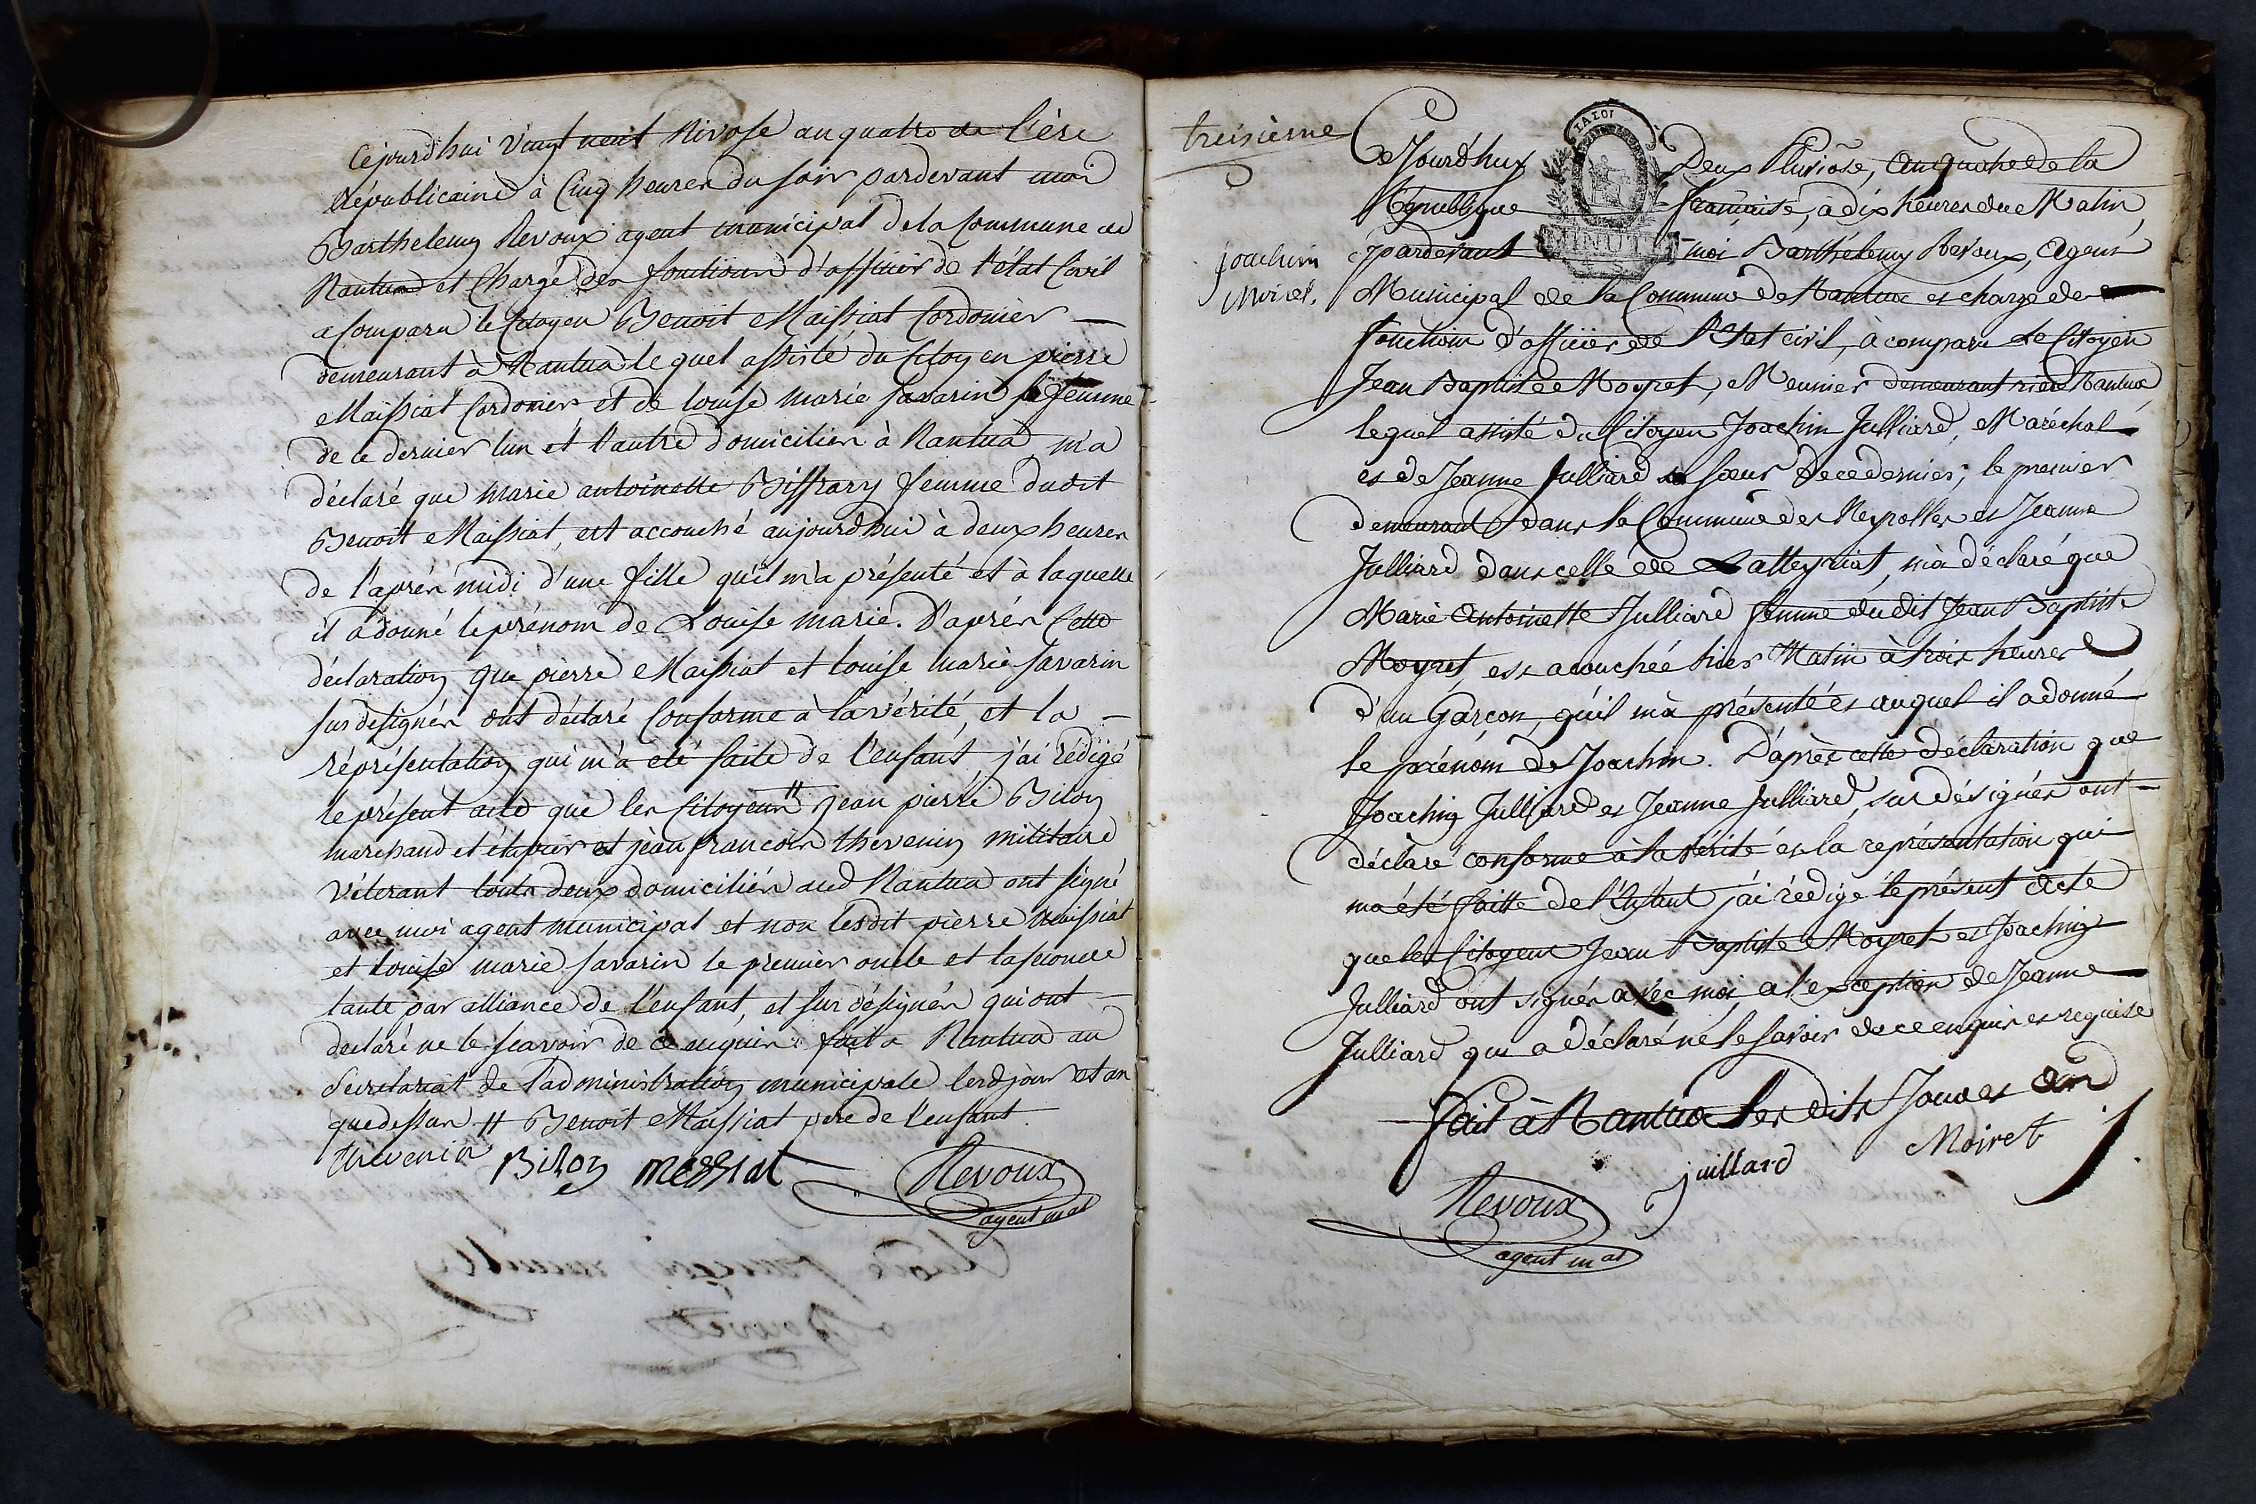 Cejourd'hui vingt neuf Nivose an quatre de l'ère
républicaine à Cinq heures du soir pardevant moi
Barthelemy Revoux agent municipal de la Commune de
Nantua et Chargé des fonctions d'officier de l'état Civil
a Comparu le Citoyen Benoit Maissiat Cordonier
demeurant à Nantua lequel assisté du Citoyen pierre
Maissiat Cordonier et de louise marie Savarin femme
de ce dernier lun et l'autre domiciliés à Nantua m'a
déclaré que marie antoinette Biffrary femme dudit
Benoit Maissiat, est accouché aujourd'hui à deux heures
de l'après midi d'une fille qu'il m'a présenté et à laquelle
il a donné le prénom de Louise marie. D'après Cette
déclaration que pierre Maissiat et louise marie Savarin
sus désignés ont déclaré Conforme à la vérité, et la
réprésentation qui m'a été faite de l'enfant j'ai rédigé
le présent acte que les Citoyens # jean pierre Biloz
marchand et jean francois thevenin militaire
véterant touts deux domiciliés aud Nantua ont signé
avec moi agent municipal et non lesdit pierre Maissiat
et louise marie Savarin le premier oncle et la seconde
tante par alliance de l'enfant, et sus désignés qui ont
declaré ne le scavoir de ce enquis. fait a Nantua au
Secretariat de l'administration municipale lesd jour et an
que dessus # Benoit Maissiat pere de l'enfant.
thevenin Biloz messiat Revoux
agent mal
treisieme
joachim
Moiret.
Cejourd'huy Deux Pluviôse, an quatre de la
République française, à dix heures du Matin
pardevant MINUTE moi Barthélemy Revoux, Agent
Municipal de la Commune de Nantua et chargé des
fonctions d'officier de l'Etat civil, à comparu le Citoyen
Jean Baptiste Moyret, Meunier demeurant rière Nantua
lequel assisté du Citoyen Joachim Julliard, Maréchal
et de Jeanne Julliard sa soeur de ce dernier, le premier
demeurant dans la Commune des Neyrolles et Jeanne
Julliard dans celle de Lalleyriat, m'à déclaré que
Marie Antoinette Julliard femme du dit Jean Baptiste
Moyret, est acouchée hier Matin à trois heures
d'un Garçon, qu'il m'à présenté et auquel il a donné
le prénom de Joachim. D'après cette déclaration que
Joachim Julliard et Jeanne Julliard, sus désignés ont
déclaré conforme à la vérité et la représentation qui
m'a été faitte de l'Enfant j'ai rédigé le présent acte
que les Citoyens Jean Baptiste Moyret et Joachim
Julliard ont signés avec moi, a l'exception de Jeanne
Julliard qui a déclaré ne le savoir de ce enquise et requise
fait à Nantua les dits Jour et an
juillard Moiret
Revoux
agent mal